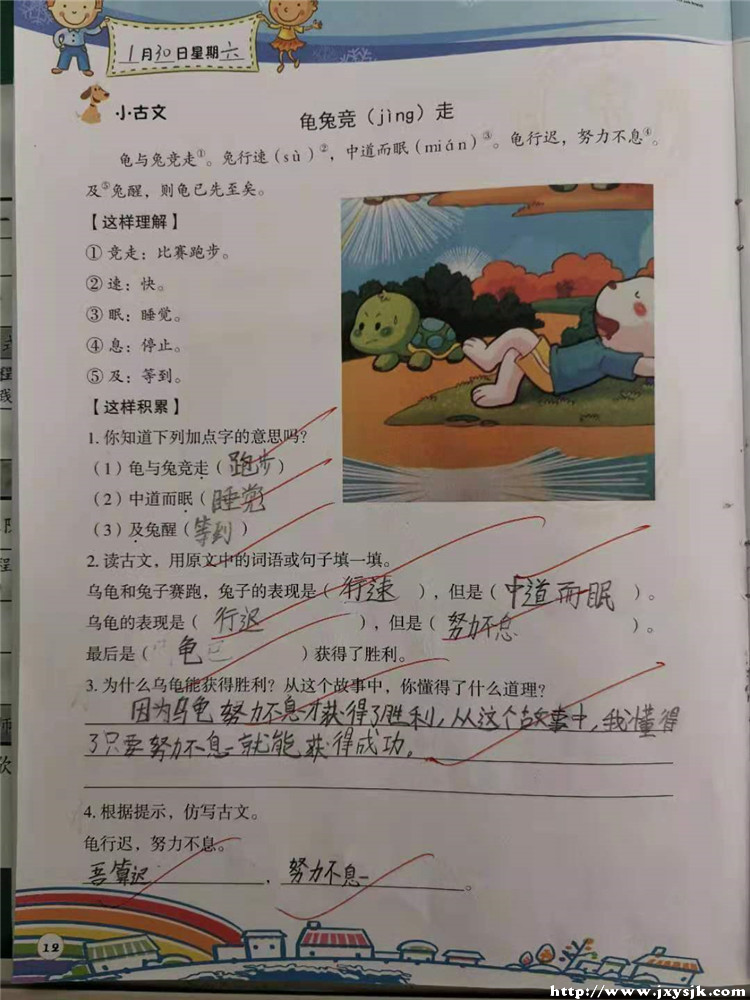 1月30日星期六
小古文
龟兔竞（jìng）走
龟与兔竞走①。兔行速（sù）②，中道而眠（mián）③。龟行迟，努力不息④。
及⑤兔醒，则龟已先至矣。
【这样理解】
① 竞走：比赛跑步。
② 速：快。
③ 眠：睡觉。
④ 息：停止。
⑤ 及：等到。
【这样积累】
1. 你知道下列加点字的意思吗？
（1）龟与兔竞走（跑步）
（2）中道而眠（睡觉
（3）及兔醒（等到）
2. 读古文，用原文中的词语或句子填一填。
乌龟和兔子赛跑，兔子的表现是（行速），但是（中道而眠）。
乌龟的表现是（行迟），但是（努力不息）。
最后是（龟）获得了胜利。
3. 为什么乌龟能获得胜利？从这个故事中，你懂得了什么道理？
因为乌龟努力不息才获得了胜利，从这个故事中，我懂得
了只要努力不息就能获得成功。
4. 根据提示，仿写古文。
龟行迟，努力不息。
吾算迟，努力不息。
12
http://www.jxysjk.com